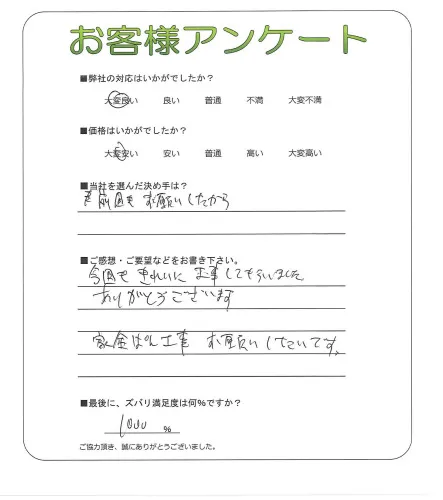 お客様アンケート
■弊社の対応はいかがでしたか?
大変良い 良い 普通 不満 大変不満
■価格はいかがでしたか?
大変安い 安い 普通 高い 大変高い
■当社を選んだ決め手は?
前回も お願いしたから
■ご感想・ご要望などをお書き下さい。
今回も きれいに 工事してもらいました
ありがとうございます
工事 お願いしたいです。
■最後に、ズバリ満足度は何%ですか?
1000 %
ご協力頂き、誠にありがとうございました。